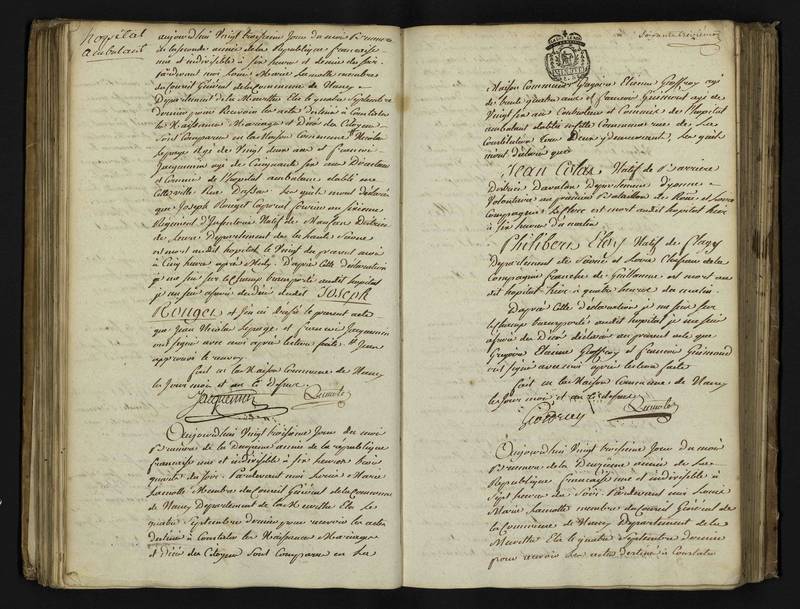 hospital
ambulant
aujourdhui Vingt troisieme Jour du mois Brumaire
de la seconde année de la Republique françaisse
une et indivisible à six heures et demie du soir
pardevant moi Louis Marie Lamotte membre
du Conseil Général de la Commune de Nancy
Departement de la Meurthe Elu le quatre Septembre
dernier pour Recevoir les actes destinés à Constater
les Naissances Mariages et Décès des Citoyens
sont Comparus en la Maison Commune Nicolas
Lepage agé de Vingt deux ans et francois
Jacquemin agé de Cinquante six ans Directeur
et Commis de l'hospital ambulant etabli en
Cette ville Rue lesquels mont déclaré
que Joseph Rouget Caporal fourier au sixieme
Regiment d'Infanterie Natif de District
de Lure Departement de la haute Saone
est mort audit hospital le Vingt du present mois
à Cinq heures après Midy. D'après Cette déclaration
je me suis sur le Champ transporté audit hospital
je me suis assuré du décès dudit Joseph
Rouget et j'en ai dressé le present acte
que Jean Nicolas Lepage et francois Jacquemin
ont signé avec moi après lecture faite Jean
approuvé le renvoy
fait en la Maison Commune de Nancy
les Jour mois et an ci dessus
Jacquemin
Aujourdhui Vingt troisieme Jour du mois
Brumaire de la Deuxieme année de la république
francaise une et indivisible à six heures trois
quarts du soir. Pardevant moi Louis Marie
Lamotte Membre du Conseil Général de la Commune
de Nancy Departement de la Meurthe Elu le
quatre Septembre dernier pour recevoir les actes
destinés à Constater les Naissances Mariages
et décès des Citoyens sont Comparus en la
Soixante treizieme
Maison Commune Gregoire Etienne Geoffroy agé
de trente quatre ans et francois Guimond agé de
Vingt six ans Controleur et Commis de l'hospital
ambulant etabli en cette Commune rue de la
Constitution tous deux y demeurant, lesquels
mont déclaré que
Jean Colas Natif de
District d'avalon departement d'yonne
Volontaire au premier Bataillon de
Compagnie Leflere est mort audit hopital hier
à six heures du matin
Philibert Eloy Natif de
Departement de Saone et Loire Chasseur de la
Compagnie franche de Guillaume est mort au
dit hopital hier à quatre heures du matin
D'après Cette déclaration je me suis sur
le Champ transporté audit hopital je me suis
assuré du Décès déclaré au présent acte que
Gregoire Etienne Geoffroy et francois Guimond
ont signé avec moi après lecture faite
fait en la Maison Commune de Nancy
les Jour mois et an ci dessus
Geoffroy
Aujourdhui Vingt troisieme Jour du mois
Brumaire de la Deuxieme année de la
Republique française une et indivisible à
Sept heures du Soir Pardevant moi Louis
Marie Lamotte membre du Conseil Général de
la Commune de Nancy Departement de la
Meurthe Elu le quatre Septembre dernier
pour recevoir les actes destinés à Constater